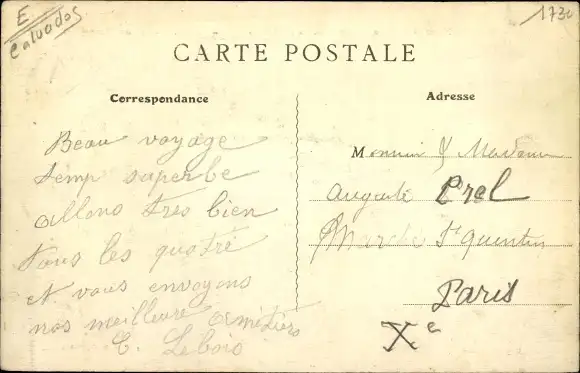 E
Calvados
1730
CARTE POSTALE
Correspondance
Adresse
Beau voyage
temp superbe
allons très bien
tous les quatre
et vous envoyons
nos meilleure amitiers
E. Lebois
Monsieur & Madame
Auguste Prel
Marché St Quentin
Paris
Xe